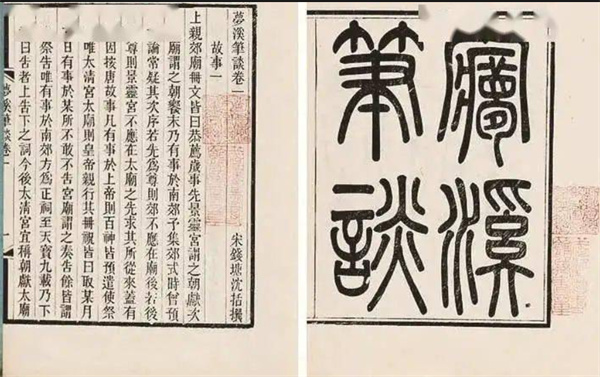 夢溪
筆談
夢溪筆談卷一
宋錢塘沈括撰
故事一
上親郊廟冊文皆曰恭薦歲事先景靈宮謂之朝獻次
廟謂之朝饗末乃有事於南郊予集郊式時曾預
論常疑其次序若先為尊則郊不應在廟後若後
尊則景靈宮不應在太廟之先求其所從來蓋有
因按唐故事凡有事於上帝則百神皆預遣使祭
唯太清宮太廟則皇帝親行其冊祝皆曰取某月
日有事於某所不敢不告宮廟謂之奏告餘皆謂
祭告唯有事於南郊方為正祠至天寶九載乃下
曰告者上告下之詞今後太清宮宜稱朝獻太廟
夢溪筆談卷一
一